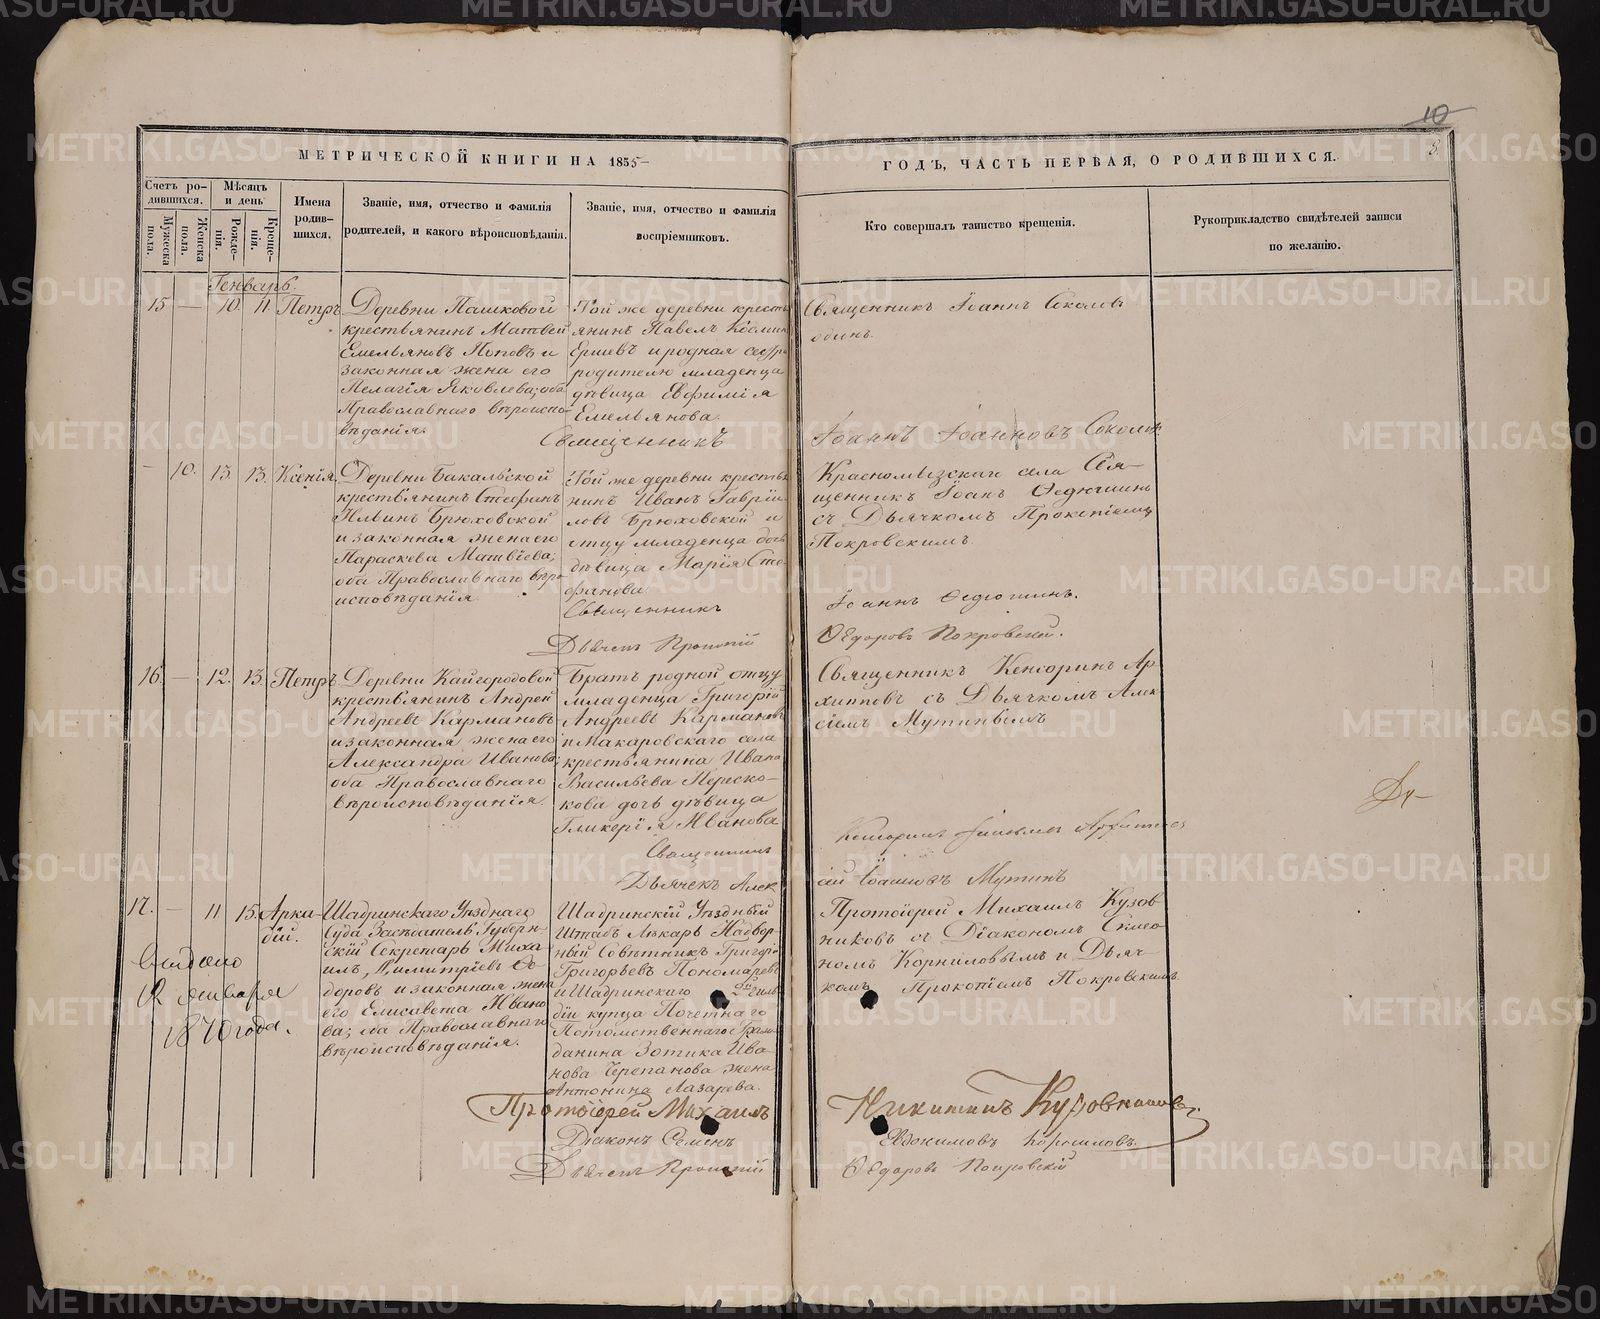 10
8.
МЕТРИЧЕСКОЙ КНИГИ НА 1855
ГОДЪ, ЧАСТЬ ПЕРВАЯ, О РОДИВШИХСЯ.
Счетъ ро-
дившихся.
Мужеска
пола.
Женска
пола.
Мѣсяцъ
и день
Рожде-
нія.
Креще-
нія.
Имена
родив-
шихся.
Званіе, имя, отчество и фамилія
родителей, и какого вѣроисповѣданія.
Званіе, имя, отчество и фамилія
воспріемниковъ.
Кто совершалъ таинство крещенія.
Рукоприкладство свидѣтелей записи
по желанію.
Генварь.
15 — 10. 11. Петръ
Деревни Пашковой
крестьянинъ Матвей
Емельяновъ Поповъ и
законная жена его
Пелагія Яковлева; оба
Православнаго вѣроиспо-
вѣданія.
Той же деревни кресть
янинъ Павелъ Козмин
Ершевъ и родная сестра
родителю младенца
дѣвица Евфимія
Емельянова.
Священникъ Іоаннъ Соколовъ
одинъ.
Священникъ
Іоаннъ Іоанновъ Соколовъ
— 10. 13. 13. Ксенія.
Деревни Бакальской
крестьянинъ Стефанъ
Ильинъ Брюховской
и законная жена его
Параскева Матвѣева;
оба Православнаго вѣро
исповѣданія.
Той же деревни крестья
нинъ Иванъ Гаврии
ловъ Брюховской и
отцу младенца дочь
дѣвица Марія Сте
фанова
Красномысская села Свя-
щенникъ Іоаннъ Ѳедюшинъ
съ Дьячкомъ Прокопіемъ
Покровскимъ.
Священникъ
Іоаннъ Ѳедюшинъ.
Дьячекъ Прокопій
Ѳедоровъ Покровскій.
16. — 12. 13. Петръ
Деревни Кайгородовой
крестьянинъ Андрей
Андреевъ Кармановъ
и законная жена его
Александра Иванова;
оба Православнаго
вѣроисповѣданія.
Братъ родной отцу
младенца Григорій
Андреевъ Кармановъ
и Макаровскаго села
крестьянина Ивана
Васильева Переско-
кова дочь дѣвица
Гликерія Иванова
Священникъ Кенсоринъ Ар
хиповъ съ Дьячкомъ Алек
сіемъ Мутинымъ
Ду-
Священникъ
Дьячекъ Алек
сій Іоанновъ Мутинъ
17. — 11 15. Арка-
дій.
Шадринскаго Уѣзднаго
Суда Засѣдатель Губерн-
скій Секретарь Миха-
илъ Димитріевъ Ѳе-
доровъ и законная жена
его Елисавета Ивано
ва; оба Православнаго
вѣроисповѣданія.
Шадринскій Уѣздный
Штабъ Лѣкарь Надвор
ный Совѣтникъ Григорій
Григорьевъ Пономаревъ
и Шадринскаго 2й гиль-
діи купца Почетнаго
Потомственнаго Граж-
данина Зотика Ива
нова Черепанова жена
Антонина Лазарева.
Протоіерей Михаилъ Кузов
никовъ съ Діакономъ Симео
номъ Корниловымъ и Дьяч-
комъ Прокопіемъ Покровскимъ.
Выдано
12 января
1870 года.
Протоіерей Михаилъ
Никитинъ Кузовниковъ.
Діаконъ Семенъ
Евдокимовъ Корниловъ.
Дьячекъ Прокопій
Ѳедоровъ Покровскій
METRIKI.GASO-URAL.RU